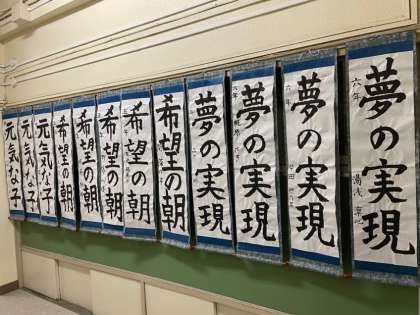 夢の実現
六年 湯浅
夢の実現
六年
夢の実現
夢の実現
希望の朝
希望の朝
希望の朝
希望の朝
希望の朝
元気な子
元気な子
元気な子